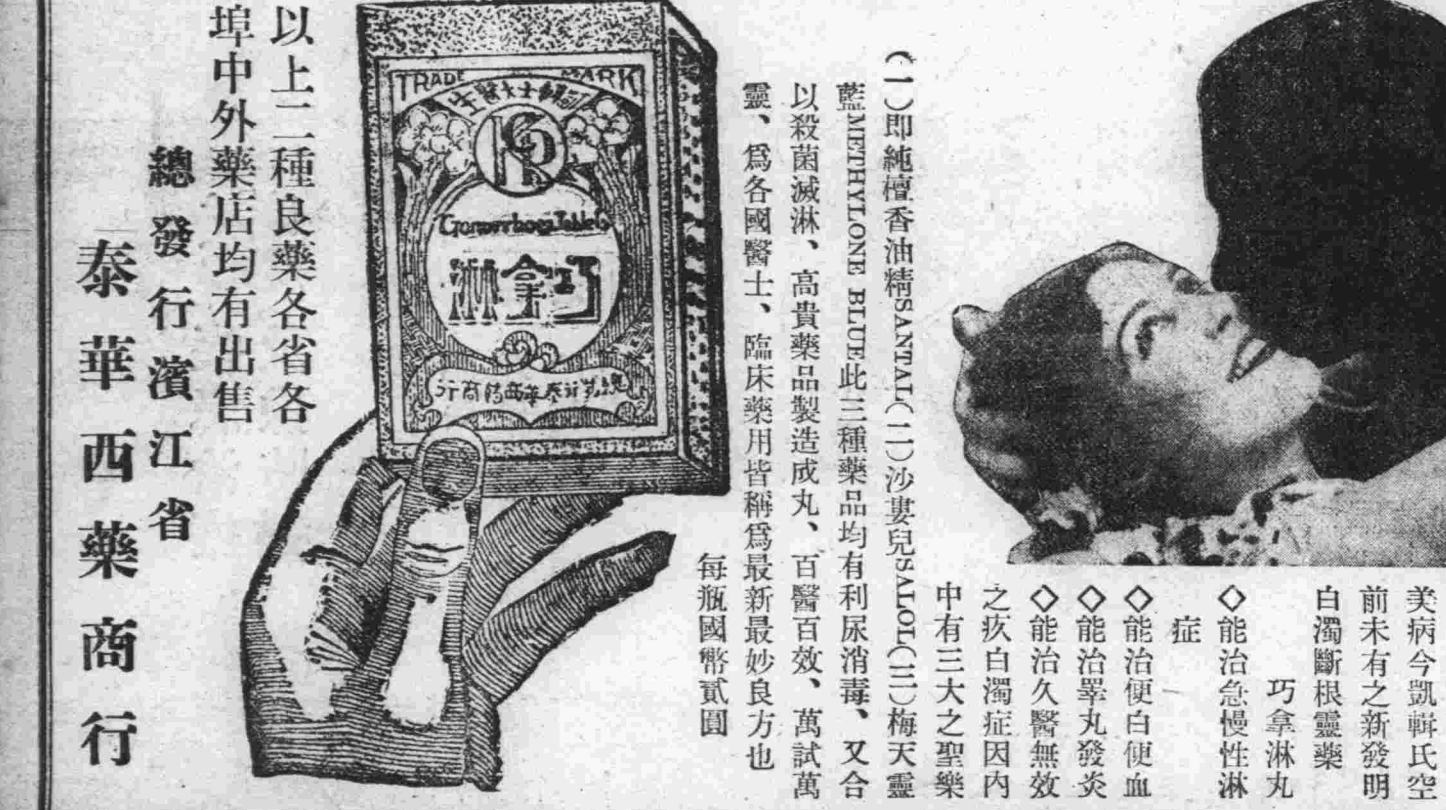 美病今凱輯氏空
前未有之新發明
白濁斷根靈藥
巧拿淋丸
◇能治急慢性淋
症
◇能治便白便血
◇能治睪丸發炎
◇能治久醫無效
之疚白濁症因內
中有三大之聖樂
(一)即純檀香油精SANTAL(二)沙婁兒SALOL(三)梅天靈
藍METHYLONE BLUE此三種藥品均有利尿消毒、又合
以殺菌滅淋、高貴藥品製造成丸、百醫百效、萬試萬
靈、爲各國醫士、臨床藥用皆稱爲最新最妙良方也
每瓶國幣貳圓
TRADE MARK
Gonorrhoea Tablets
巧拿淋
以上二種良藥各省各
埠中外藥店均有出售
總發行濱江省
泰華西藥商行